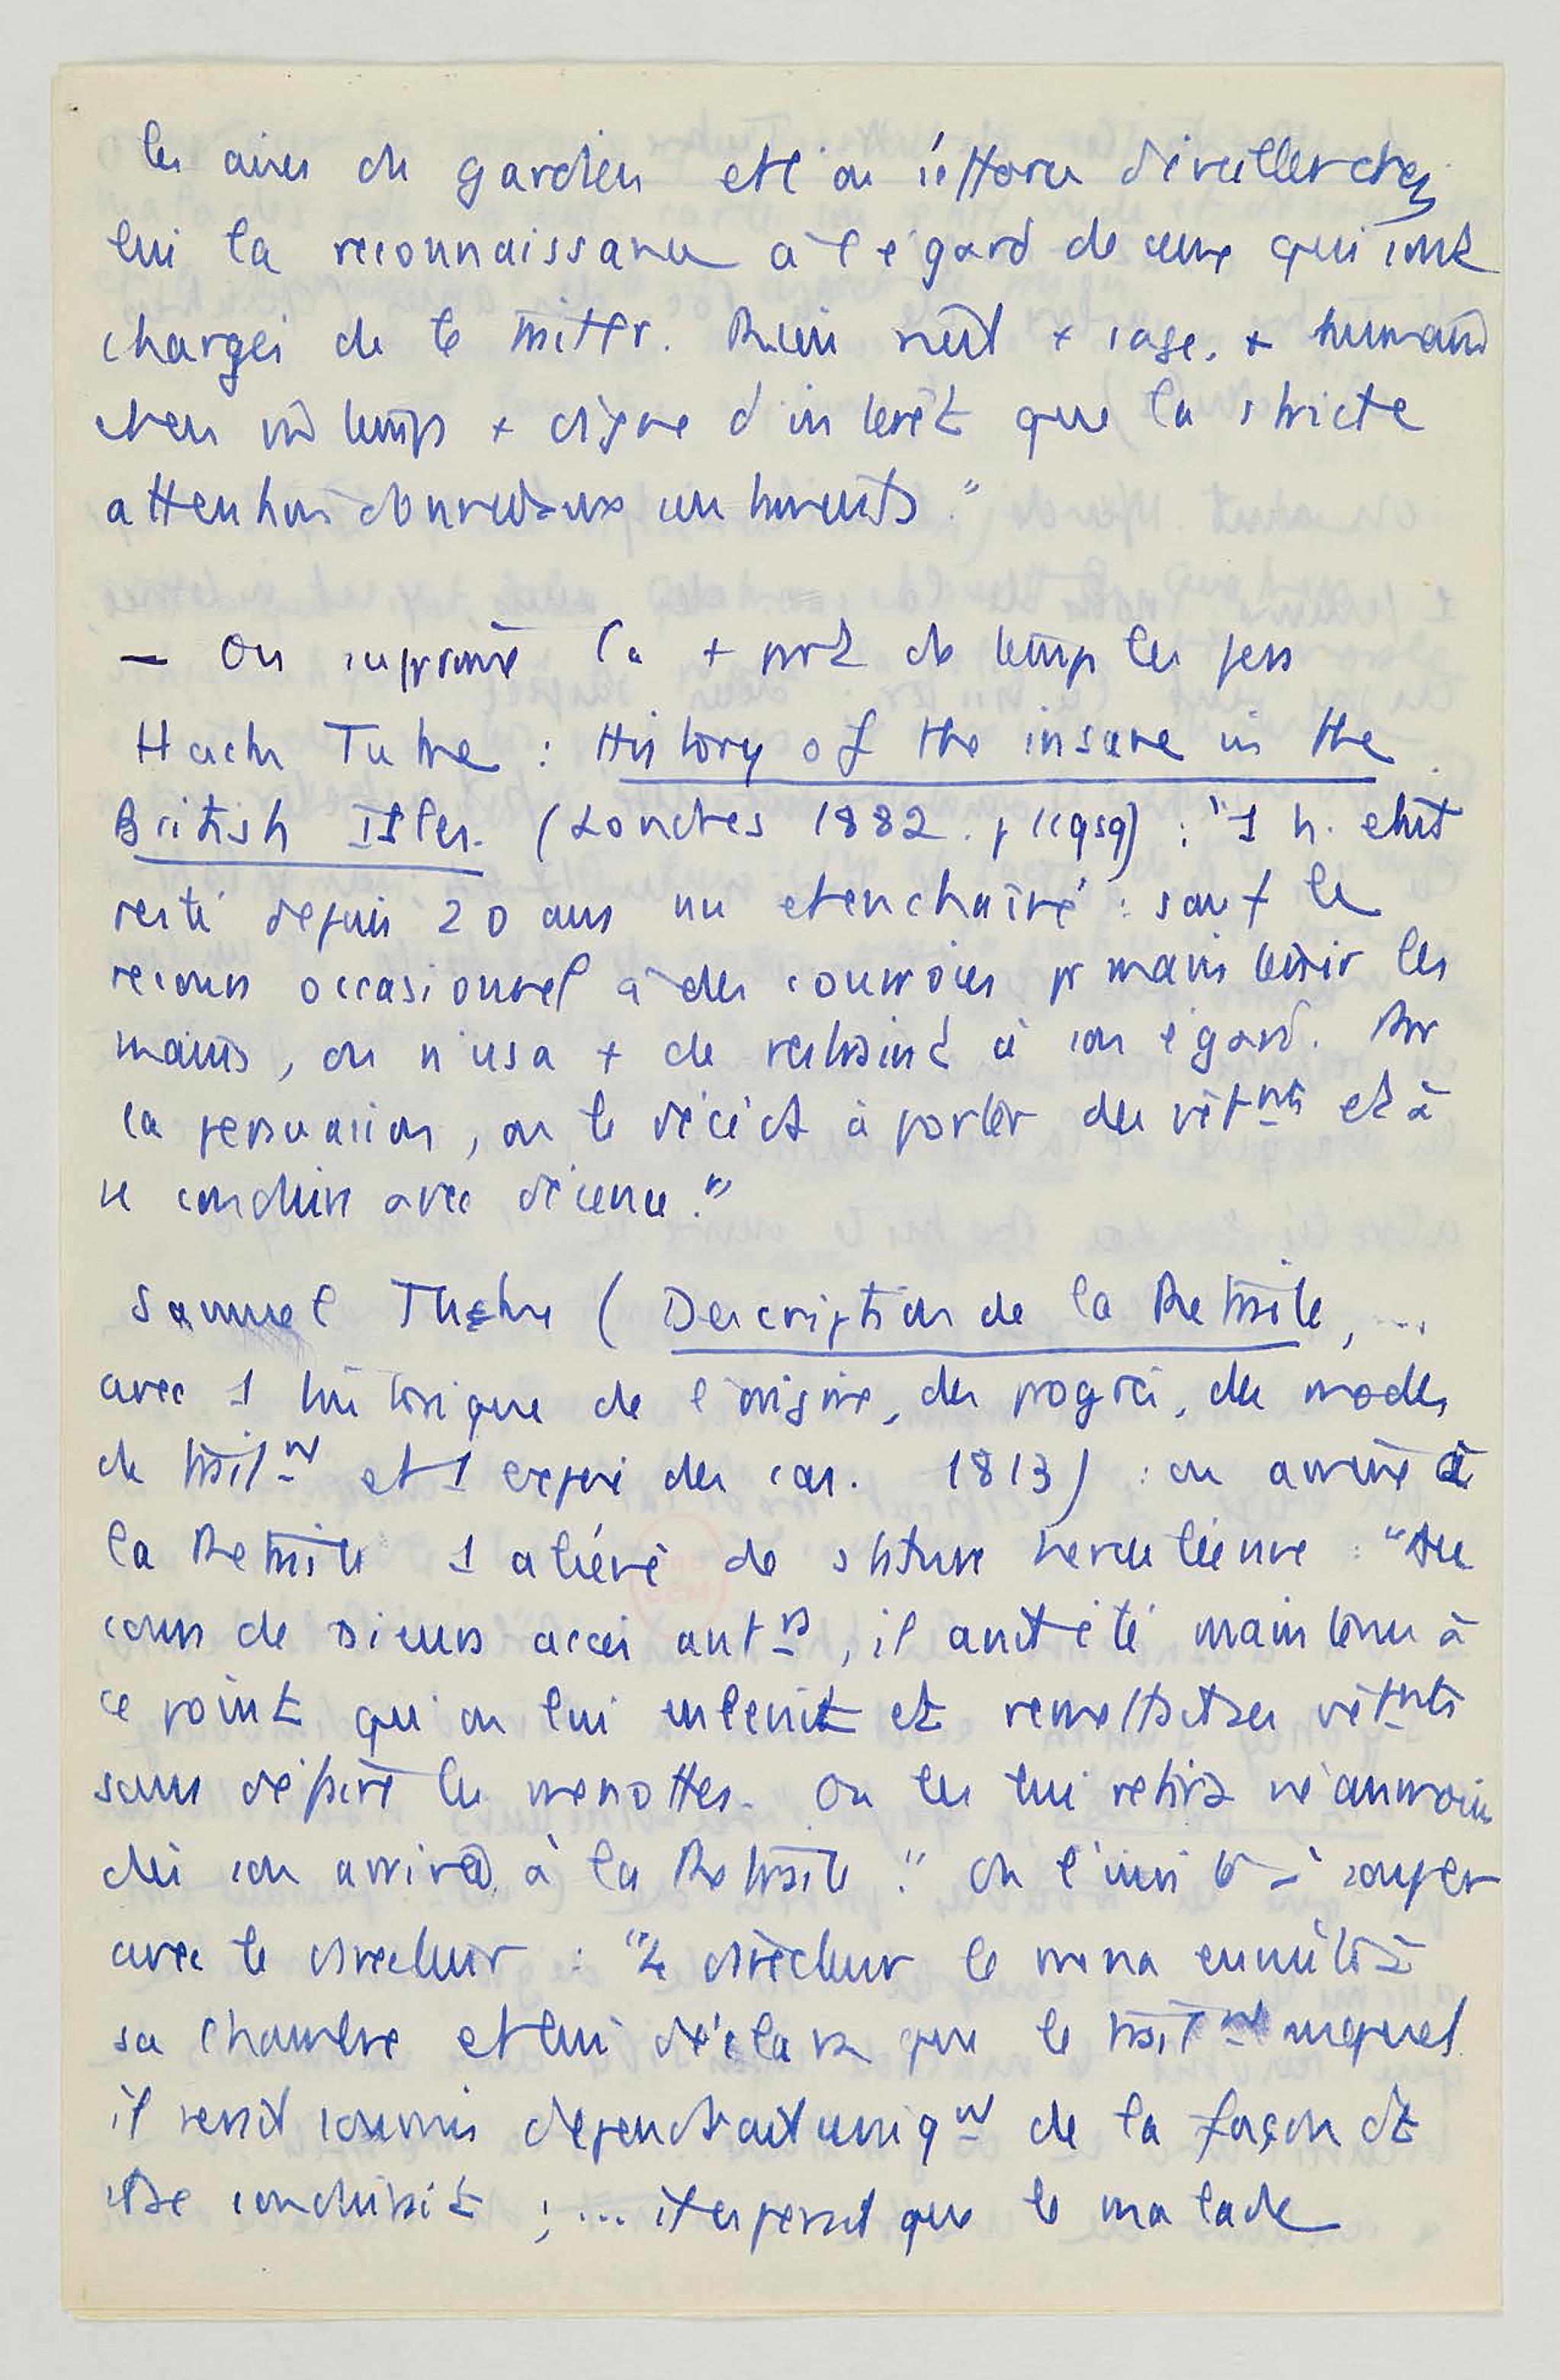 les aires du gardien et l'on s'efforce d'éveiller chez
lui la reconnaissance à l'égard de ceux qui sont
chargés de le traiter. Rien n'est + sage, + humain
et en m̂ temps + digne d'intérêt que la stricte
attention donnée aux
— On supprime la + part de temps les fers
Hack Tuke : History of the insane in the
British Isles. (Londres 1882. p 119sq) : "1 h. était
resté depuis 20 ans nu et enchaîné : sauf le
recours occasionnel à des courroies pr maintenir les
mains, on n'usa + de restraint à son égard. Par
la persuasion, on le décida à porter des vêtmts et à
se conduire avec décence."
Samuel Tuke (Description de la Retraite, ...
avec 1 historique de l'origine, des progrès, des modes
de traitmt et 1 exposé des cas. 1813) : on amène à
la Retraite 1 aliéné de stature herculéenne : "Au
cours de accès antrs, il avait été maintenu à
ce point qu'on lui enlevait et remettait ses vêtmts
sans défaire les menottes. On les lui retira néanmoins
dès son arrivée à la Retraite." On l'invite à souper
avec le directeur : "Le directeur le mena ensuite à
sa chambre et lui déclara que le traitmt auquel
il serait soumis dépendrait uniqmt de la façon dt
il se conduirait ; ... il espérait que le malade